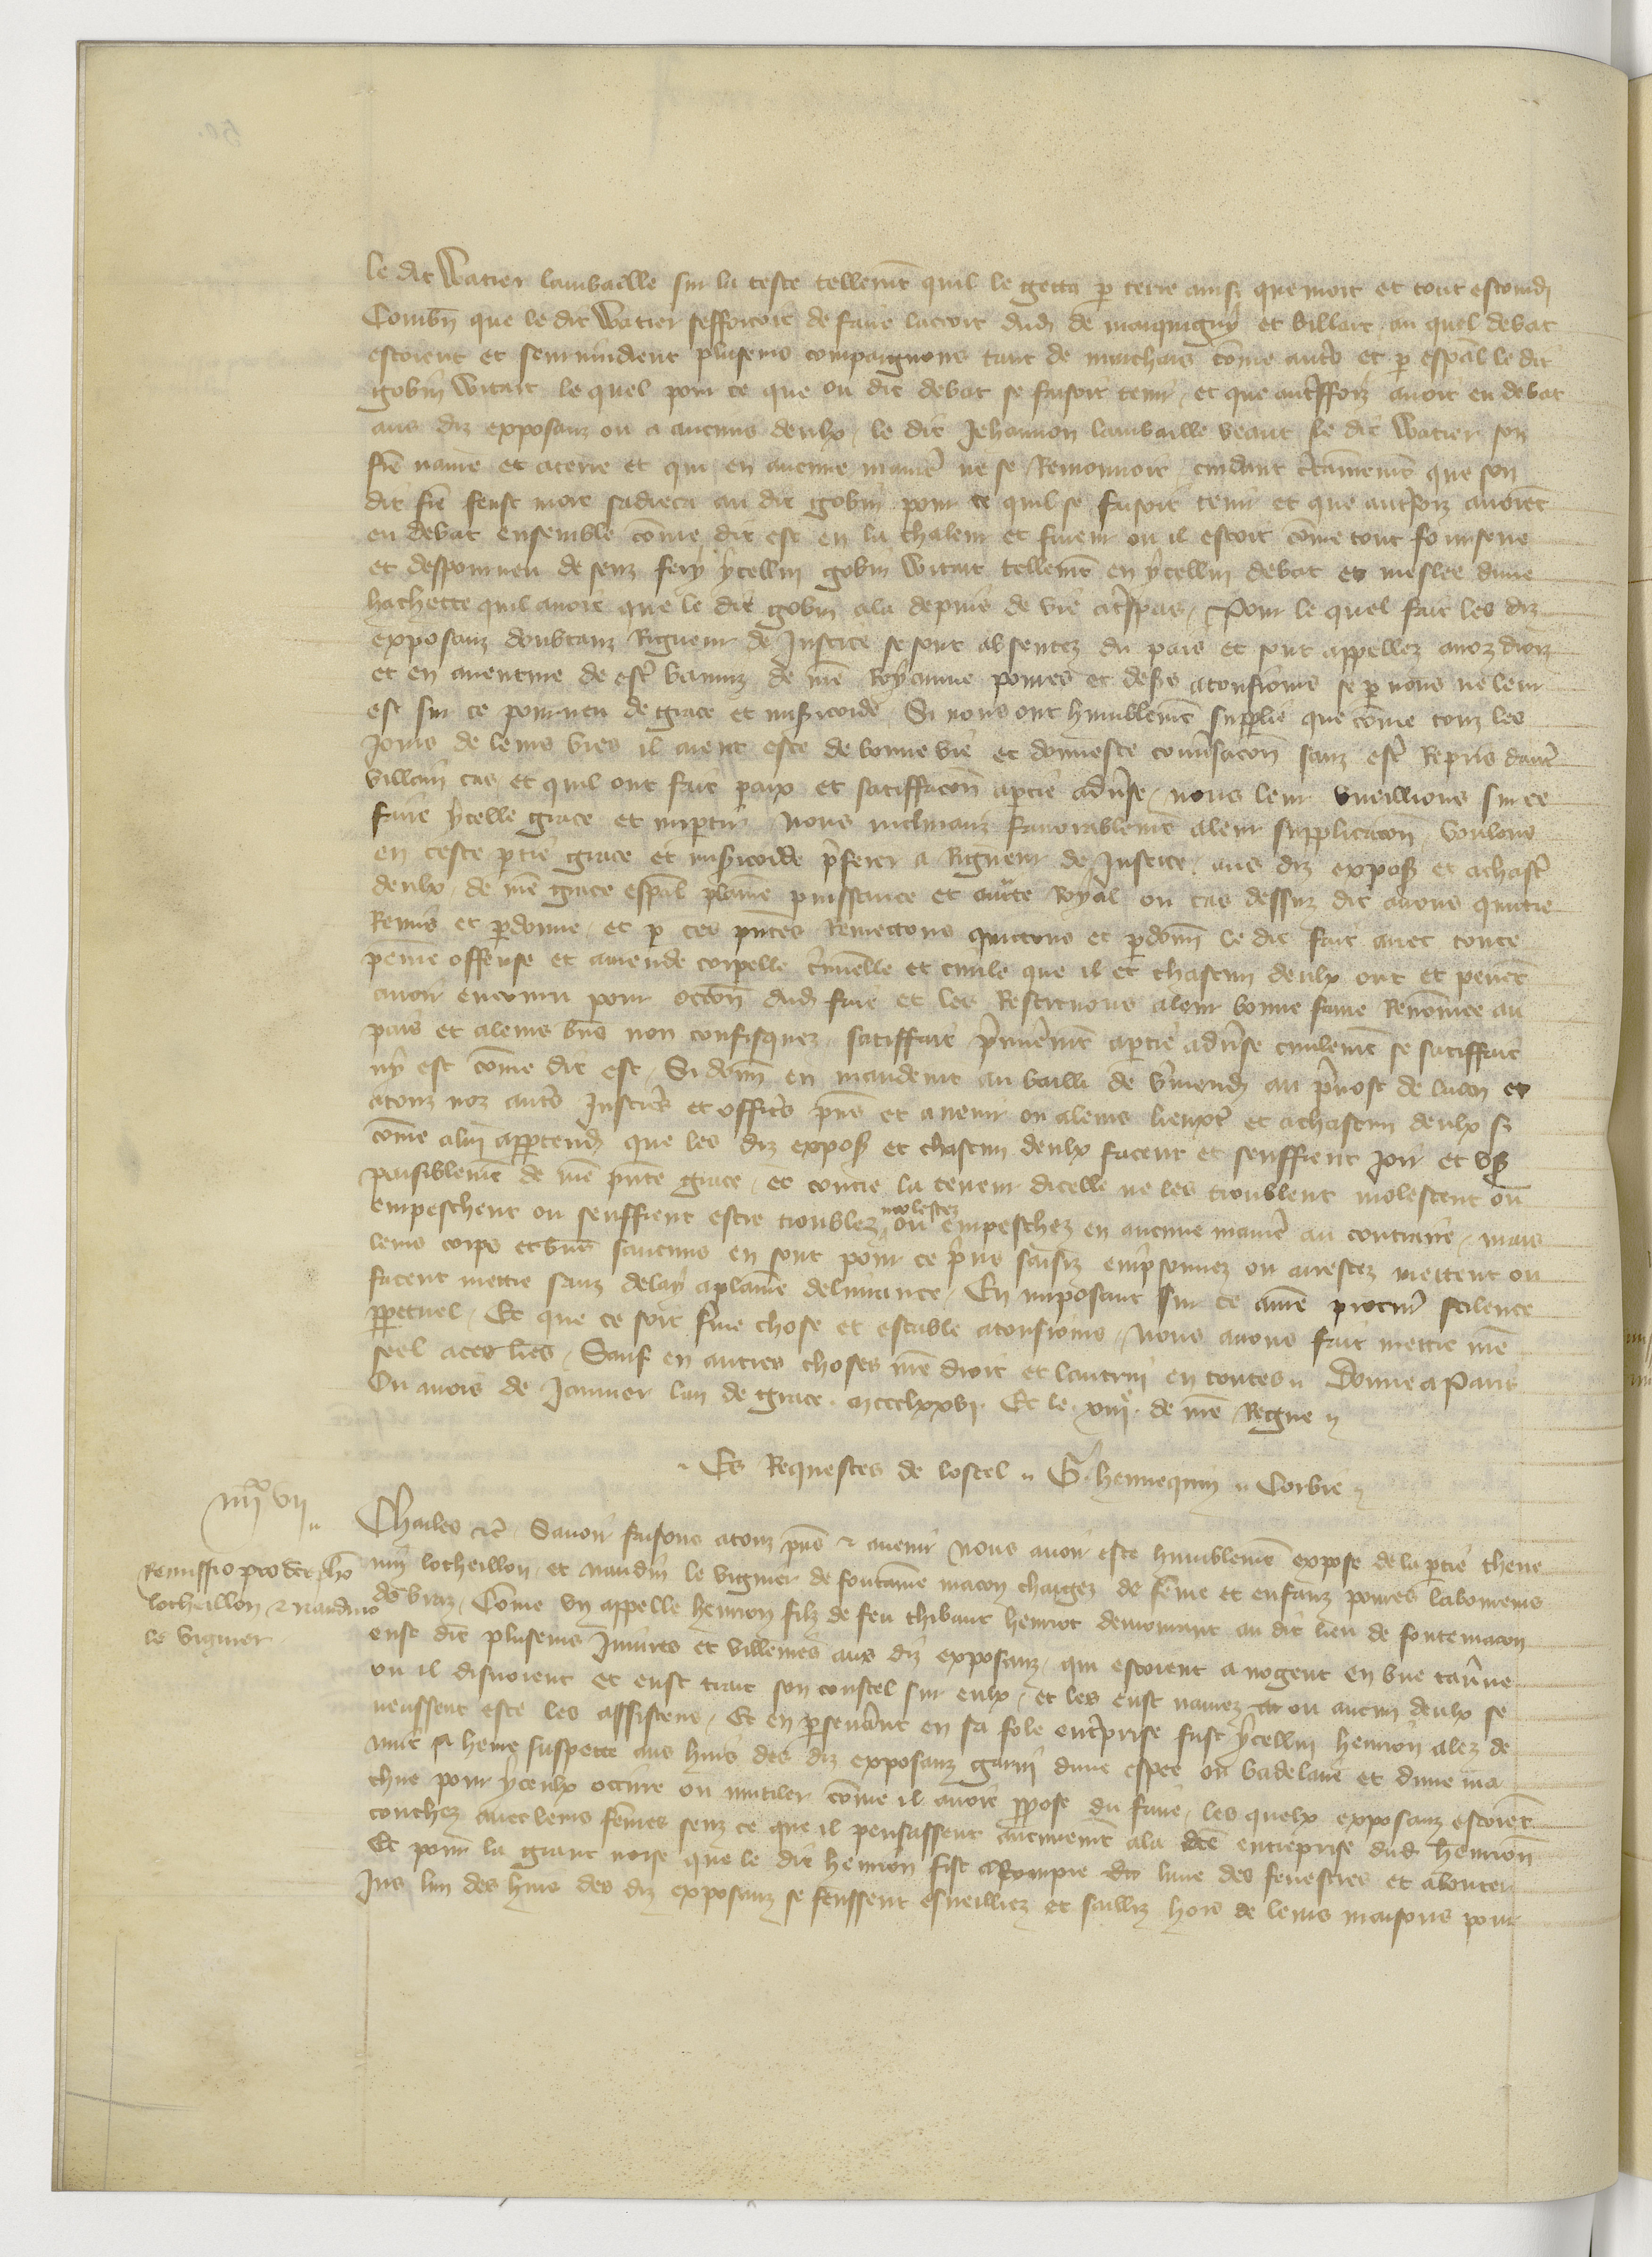 le dit Watier lanvaille sur la teste tellemt quil le getta p terre ainsi que mort et tout estourdj
Combn que le dit Watier sefforcoit de faire lacort dudj de marquigny et billart au quel debat
estoient et seurvindrent pluseurs compaignons tant de marchais come autrs et p espal le dit
gobin witart le quel pour ce que ou dit debat se faisoit tenir et que autreffoiz avoit eu debat
aus diz exposanz ou a aucuns deulx le dit Jehannon lanvaille veant le dit Watier son
fre navre et aterre et qui en aucune manie ne se Remouvoit cuidant ctainemt que son
dit fre feust mort sadreca au dit gobin pour ce quil se faisoit tenir et que autrefoiz avoiet
eu debat ensemble come dit est en la chaleur et fureur ou il estoit come tout forsene
et despourveu de senz fery ycellui gobin witart tellemt en ycellui debat et meslee dune
hachette quil avoit que le dit gobin ala depuis de vie a trespas Pour le quel fait les diz
exposanz doubtanz Rigueur de Justice se sont absentez du pais et sont appellez a noz droiz
et en aventure de estr baniz de nre Royaume povres et desers a tousiours se p nous ne leur
est sur ce pourveu de grace et misicorde Si nous ont humblemt supplie que come touz les
Jours de leurs vies il aient este de bonne vie et donneste conversacon sanz estr Repris dautr
villain cas et quil ont fait paix et satiffacon a ptie advse nous leur vueillions sur ce
faire ycelle grace et impartir Nous inclinanz favorablemt a leur supplicacon voulans
en ceste ptie grace et misicorde prferer a Rigueur de Justice aus diz expos et a chascr
deulx de nre grace espal plaine puissance et aucte Royal ou cas dessuz dit avons quittie
Remis et pdonne et p ces pntes Remettons quittons et pdonn le dit fait avec toute
peine offense et amende corpelle criminelle et civile que il et chascun deulx ont et pevent
avoir encouru pour occon dudj fait et les Restituons a leur bonne fame Renomee au
pais et a leurs bns non confisquez satiffait prmieremt a ptie advse civilemt se satiffait
ny est come dit est Si donn en mandemt au bailli de vmendj au prvost de laon et
a touz noz autrs Justiciers et officrs pns et avenir ou a leurs lieuxt et a chascun deulx si
come a lui appartendj que les diz expos et chascun deulx facent et seuffrent Joir et us
paisiblemt de nre pnte grace et contre la teneur dicelle ne les troublent molestent ou
empeschent ou seuffrent estre troublez molestez ou empeschez en aucune manie au contraire mais
leurs corps et bns saucuns en sont pour ce pris saisiz emprisonnez ou arrestez mettent ou
facent mettre sanz delay a plaine delivrance En imposant sur ce a nre procur scilence
ppetuel Et que ce soit ferme chose et estable a tousiours Nous avons fait mettre nre
seel a ces lres Sauf en autres choses nre droit et lautrui en toutes Donne a Paris
Ou mois de Janvier lan de grace mccclxxvi Et le xiiie de nre Regne
Es Requestes de lostel G hennequin Corbie
iiiixx vii
Charles etc Savoir faisons a touz pns et avenir Nous avoir este humblemt expose de la ptie theve
nin locheillon et naudin le vignier de fontaine macon chargez de feme et enfanz povres laboureurs
de braz Come un appelle henrion filz de feu thibaut henriot demourant au dit lieu de fontemacon
eust dit pluseurs Jniures et villenies aus diz exposanz qui estoient a nogent en une tavrne
ou il disnoient et eust trait son coustel sur eulx et les eust navrez ou aucun deulx se
neussent este les assistens Et en psevrant en sa fole entrprise fust ycellui henrion alez de
nuit a heure suspette aus huis des diz exposanz garni dune espee ou badelaire et dune ma
chue pour yceulx occire ou mutiler come il avoit ppose du faire les quelx exposanz estoiet
couchez avec leurs femes senz ce que il pensassent aucunemt a la dte entreprise dudj henrion
Et pour la grant noise que le dit henrion fist a Rompre lune des fenestres et a bouter
Jus lun des huis des diz exposanz se feussent esveilliez et sailliz hors de leurs maisons pour
Remissio pro dco theo
locheillon et naudino
le vignier